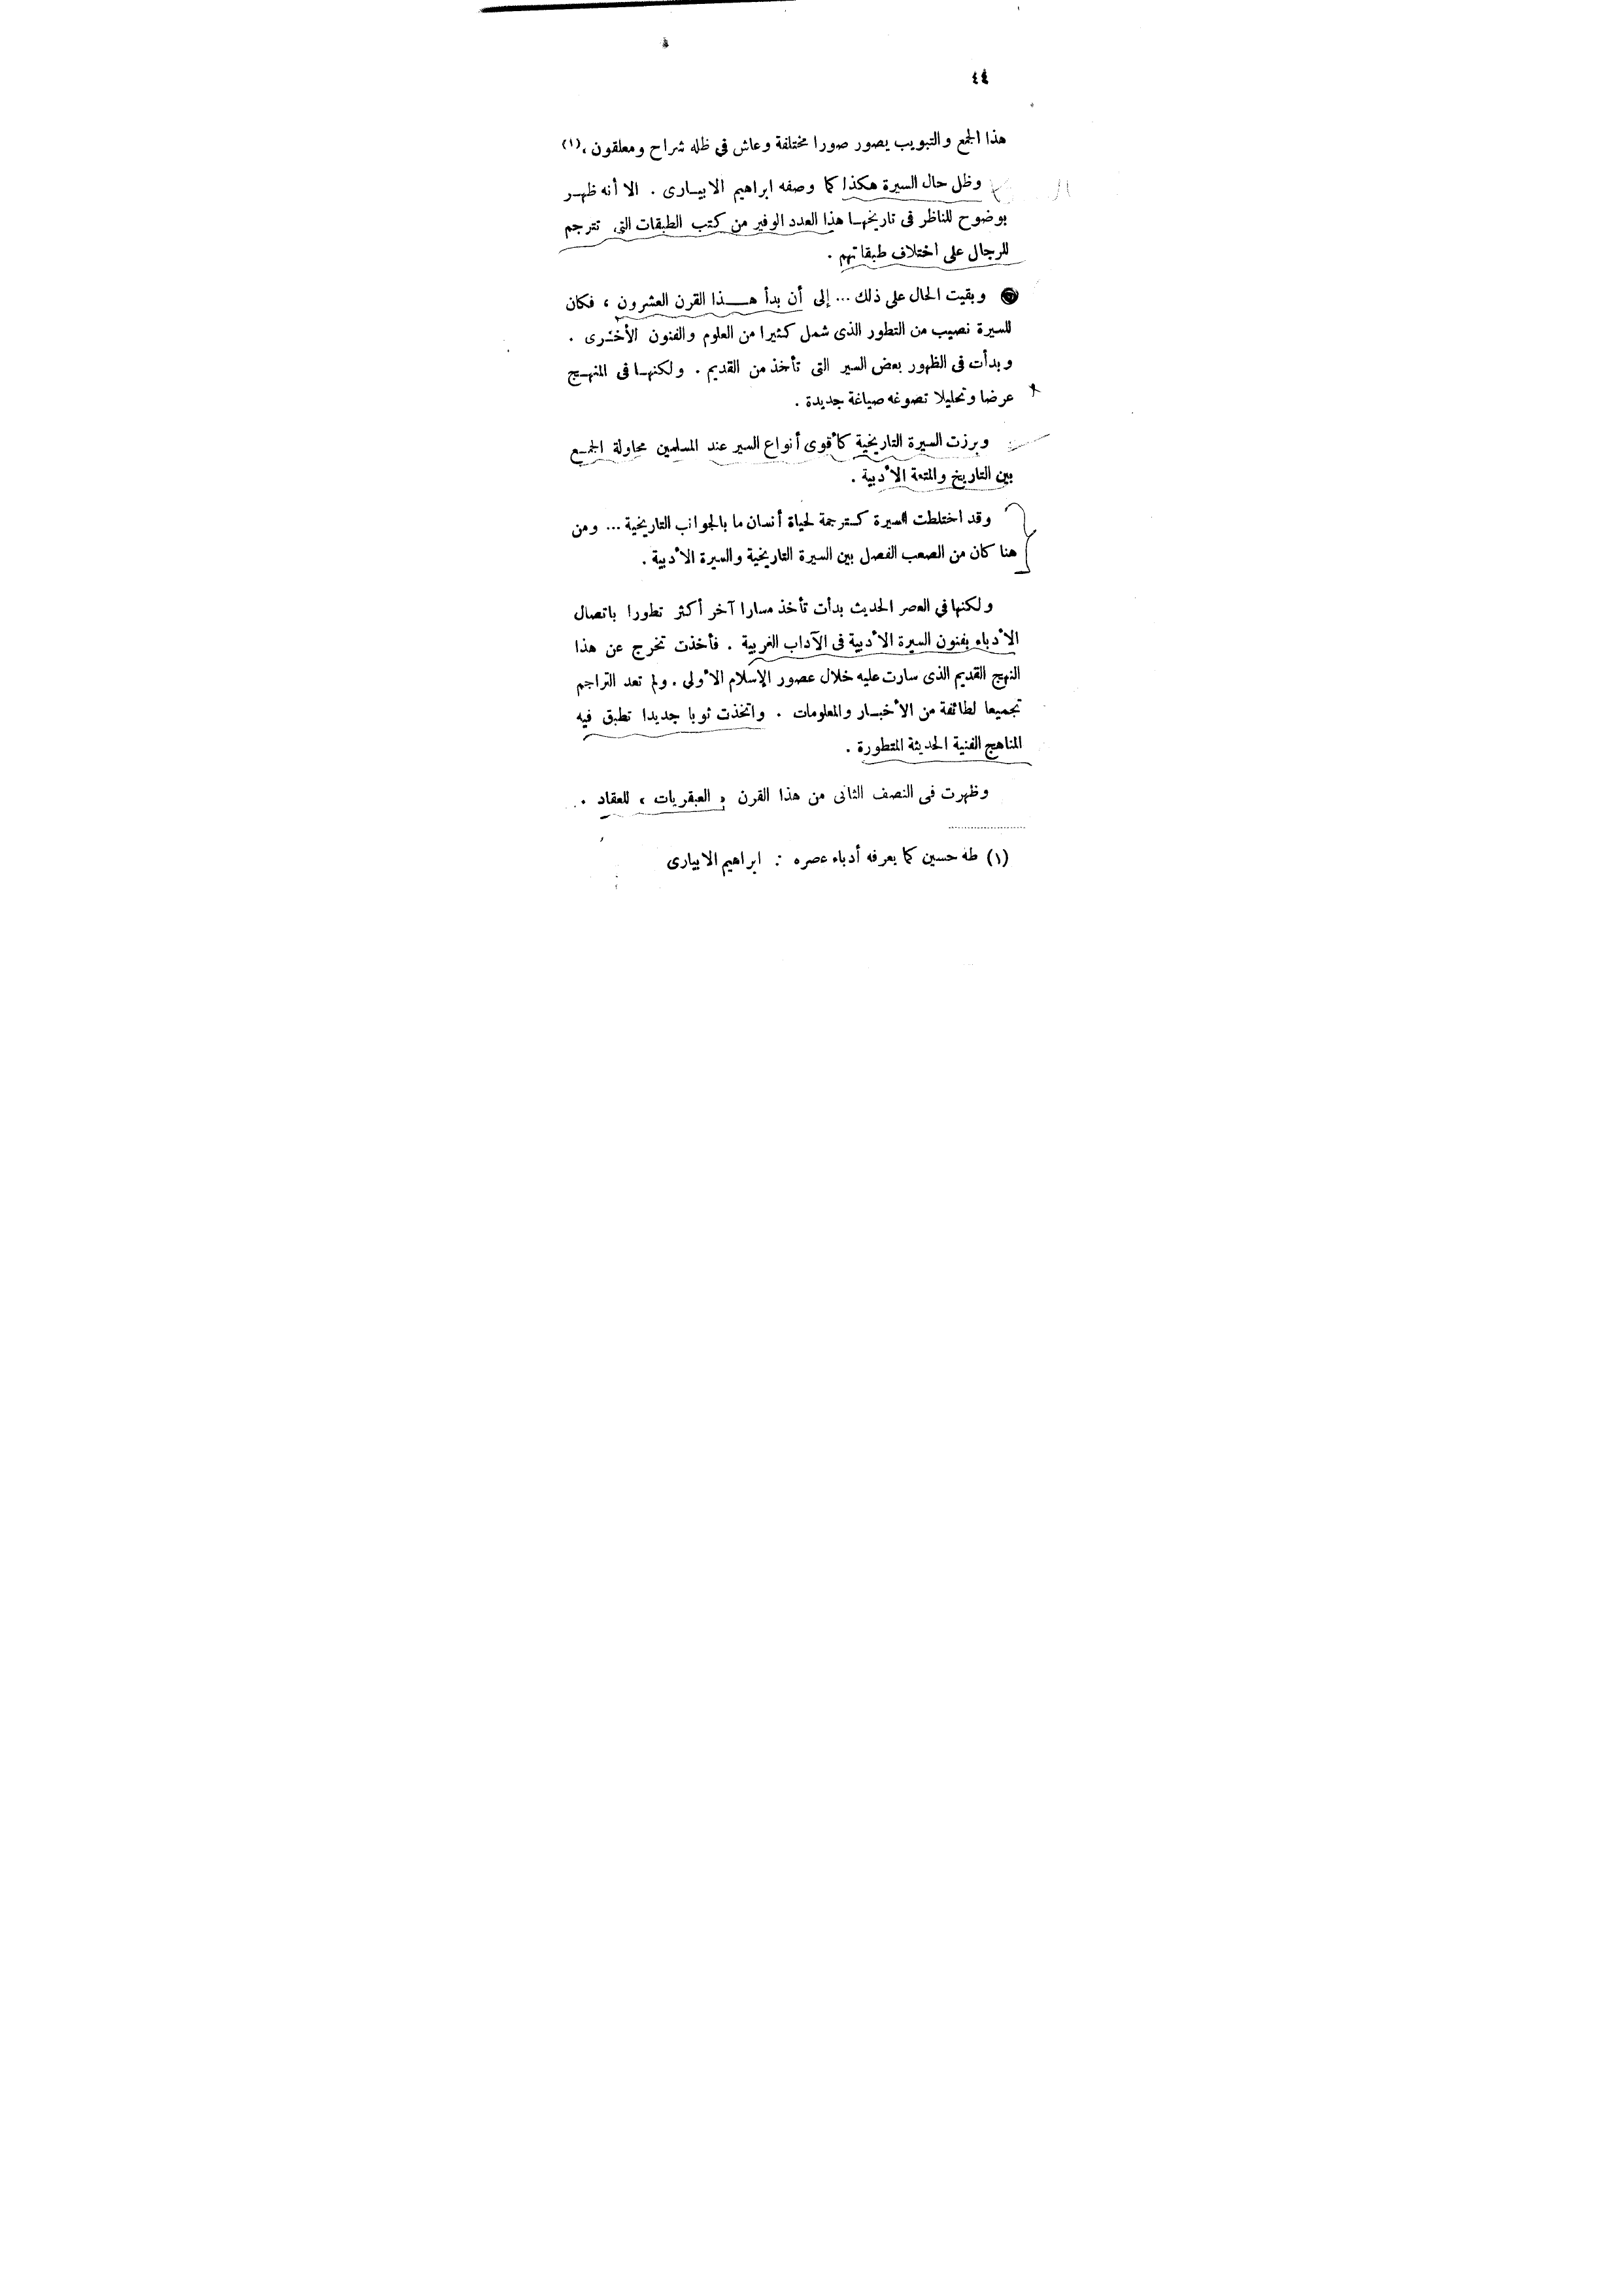 ٤٤
هذا الجمع والتبويب يصور صورا مختلفة وعاش في ظله شراح ومعلقون ،(١)
وظل حال السيرة هكذا كما وصفه ابراهيم الابيـارى . الا أنه ظهـر
بوضوح للناظر فى تاريخهـا هذا العدد الوفير من كتب الطبقات التى تترجم
للرجال على اختلاف طبقاتهم .
وبقيت الحال على ذلك ... إلى أن بدأ هـــذا القرن العشرون ، فكان
للسيرة نصيب من التطور الذى شمل كثيرا من العلوم والفنون الأخرى .
وبدأت فى الظهور بعض السير التى تأخذ من القديم . ولكنهـا فى المنهـج
عرضا وتحليلا تصوغه صياغة جديدة .
وبرزت السيرة التاريخية كأقوى أنواع السير عند المسلمين محاولة الجمـع
بين التاريخ والمتعة الأدبية .
وقد اختلطت السيرة كـترجمة لحياة أنسان ما بالجوانب التاريخية ... ومن
هنا كان من الصعب الفصل بين السيرة التاريخية والسيرة الأدبية .
ولكنها فى العصر الحديث بدأت تأخذ مسارا آخر أكثر تطورا باتصال
الأدباء بفنون السيرة الأدبية فى الآداب الغربية . فأخذت تخرج عن هذا
النهج القديم الذى سارت عليه خلال عصور الإسلام الأولى . ولم تعد التراجم
تجميعا لطائفة من الأخبـار والمعلومات . واتخذت ثوبا جديدا تطبق فيه
المناهج الفنية الحديثة المتطورة .
وظهرت فى النصف الثانى من هذا القرن « العبقريات » للعقاد .
(١) طه حسين كما يعرفه أدباء عصره : ابراهيم الابيارى